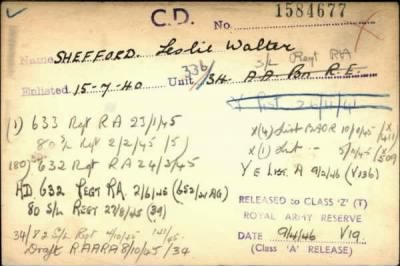 C.D.
No. 1584677
Name SHEFFORD. Leslie Walter
S/L Regt RA
Enlisted 15-7-40 Unit 336/34 A A Bn R.E.
(1) 633 Rgt RA 23/1/45
80 S/L Rgt 2/2/45
X(4) List BAOR 10/8/45
632 Rgt RA 24/2/45
X(1) List
HD 632 REGT RA. 2/6/45
Y E LIST. A 9/2/46 (V136)
80 S/L REGT 27/8/45 (39)
RELEASED to CLASS 'Z' (T)
ROYAL ARMY RESERVE
DATE 9/4/46 V19
(Class 'A' RELEASE)
S/L Rgt
Draft RAARA 8/10/45 /34